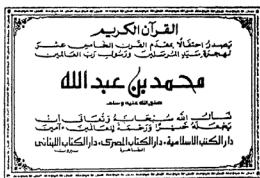 القرآن الكريم
يصدر احتفالاً بمقدم القرن الخامس عشر
لهجرة سيد المرسلين ورسول رب العالمين
محمد بن عبد الله
صلى الله عليه وسلم
نسأل الله سبحانه وتعالى أن
يجعله خيراً ورحمة للعالمين آمين
دار الكتب الإسلامية - دار الكتاب المصرى - دار الكتاب اللبنانى
القاهرة بيروت